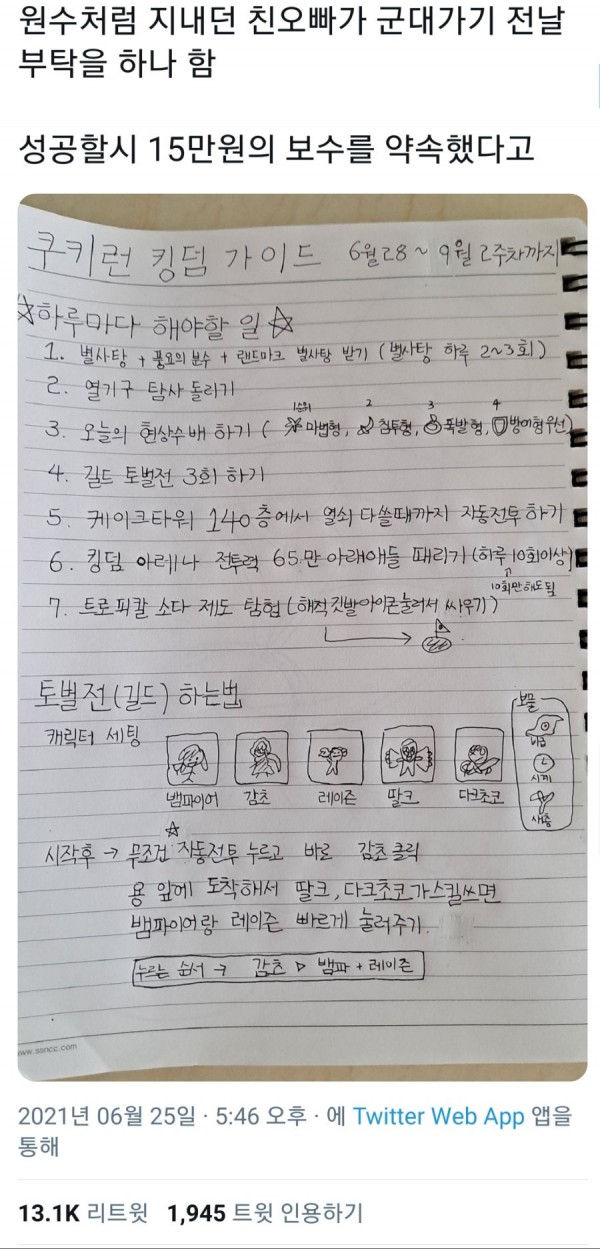 원수처럼 지내던 친오빠가 군대가기 전날
부탁을 하나 함
성공할시 15만원의 보수를 약속했다고
쿠키런 킹덤 가이드 6월28 ~ 9월 2주차까지
☆하루마다 해야할 일☆
1. 별사탕 + 풍요의 분수 + 랜드마크 별사탕 받기 (별사탕 하루 2~3회)
2. 열기구 탐사 돌리기
1순위 2 3 4
3. 오늘의 현상수배 하기 ( 마법형, 침투형, 폭발형, 방어형 우선)
4. 길드 토벌전 3회 하기
5. 케이크타워 140층에서 열쇠 다쓸때까지 자동전투 하기
6. 킹덤 아레나 전투력 65만 아래애들 때리기 (하루 10회이상)
10회만해도됨
7. 트로피칼 소다 제도 탐험 (해적깃발아이콘눌러서 싸우기)
토벌전(길드) 하는법
보물
캐릭터 세팅
시계
뱀파이어 감초 레이즌 딸크 다크초코
시작후 → 무조건 ☆자동전투 누르고 바로 감초클릭
용 앞에 도착해서 딸크, 다크초코가스킬쓰면
뱀파이어랑 레이즌 빠르게 눌러주기.
누르는 순서 → 감초 ▷ 뱀파 + 레이즌
www.ssncc.com
2021년 06월 25일 · 5:46 오후 · 에 Twitter Web App 앱을
통해
13.1K 리트윗 1,945 트윗 인용하기